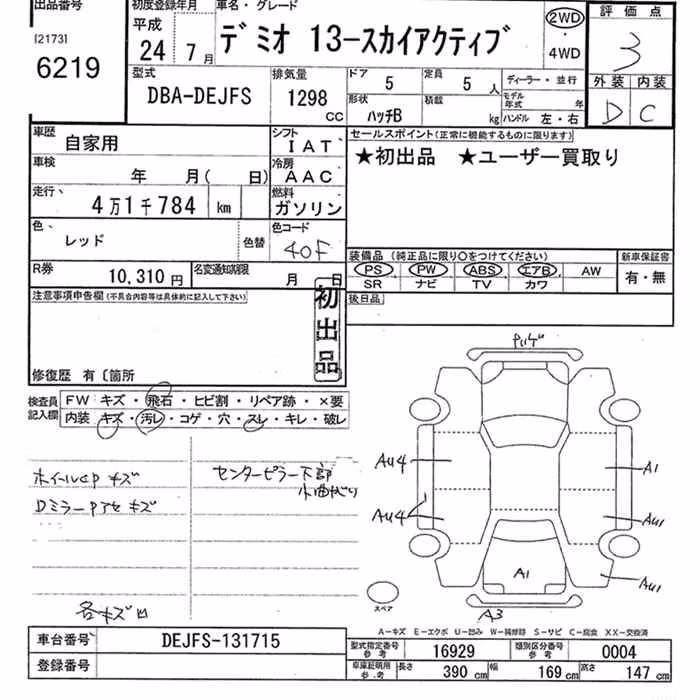 出品番号
[2173]
6219
初度登録年月
平成
24 7月
車名・グレード
デミオ 13-スカイアクティブ
2WD
・
4WD
評価点
3
外装 内装
D C
型式
DBA-DEJFS
排気量
1298
CC
ドア
5
定員
5 人
形状
ハッチB
積載
kg
ディーラー・並行
モデル年式 年
ハンドル 左・右
車歴
自家用
シフト
IAT
車検
年 月( 日)
冷房
AAC
走行、
4万1千784 km
燃料
ガソリン
色、
レッド
色替
色コード
40F
R券
10,310 円
名変通知期限
月 日
セールスポイント(正常に機能するものに限ります)
★初出品 ★ユーザー買取り
装備品 (純正品に限り〇をつけてください)
PS PW ABS エアB AW
SR ナビ TV カワ
新車保証書
有・無
後日品
注意事項申告欄(不具合内容等は具体的に記入して下さい)
初出品
修復歴 有〔箇所
検査員記入欄
FW キズ・飛石・ヒビ割・リペア跡・×要
内装 キズ・汚レ・コゲ・穴・スレ・キレ・破レ
ホイールCP キズ
Dミラー Pアセ キズ
センターピラー下部
小曲がり
各キズ凹
AU4
AU4
A1
AU1
AU1
A1
A3
スペア
A-キズ E-エクボ U-凹み W-補修跡 S-サビ C-腐食 XX-交換済
車台番号
DEJFS-131715
登録番号
型式指定番号 参考
16929
類別区分番号 参考
0004
車庫証明用 参考
長さ 390 cm
幅 169 cm
高さ 147 cm